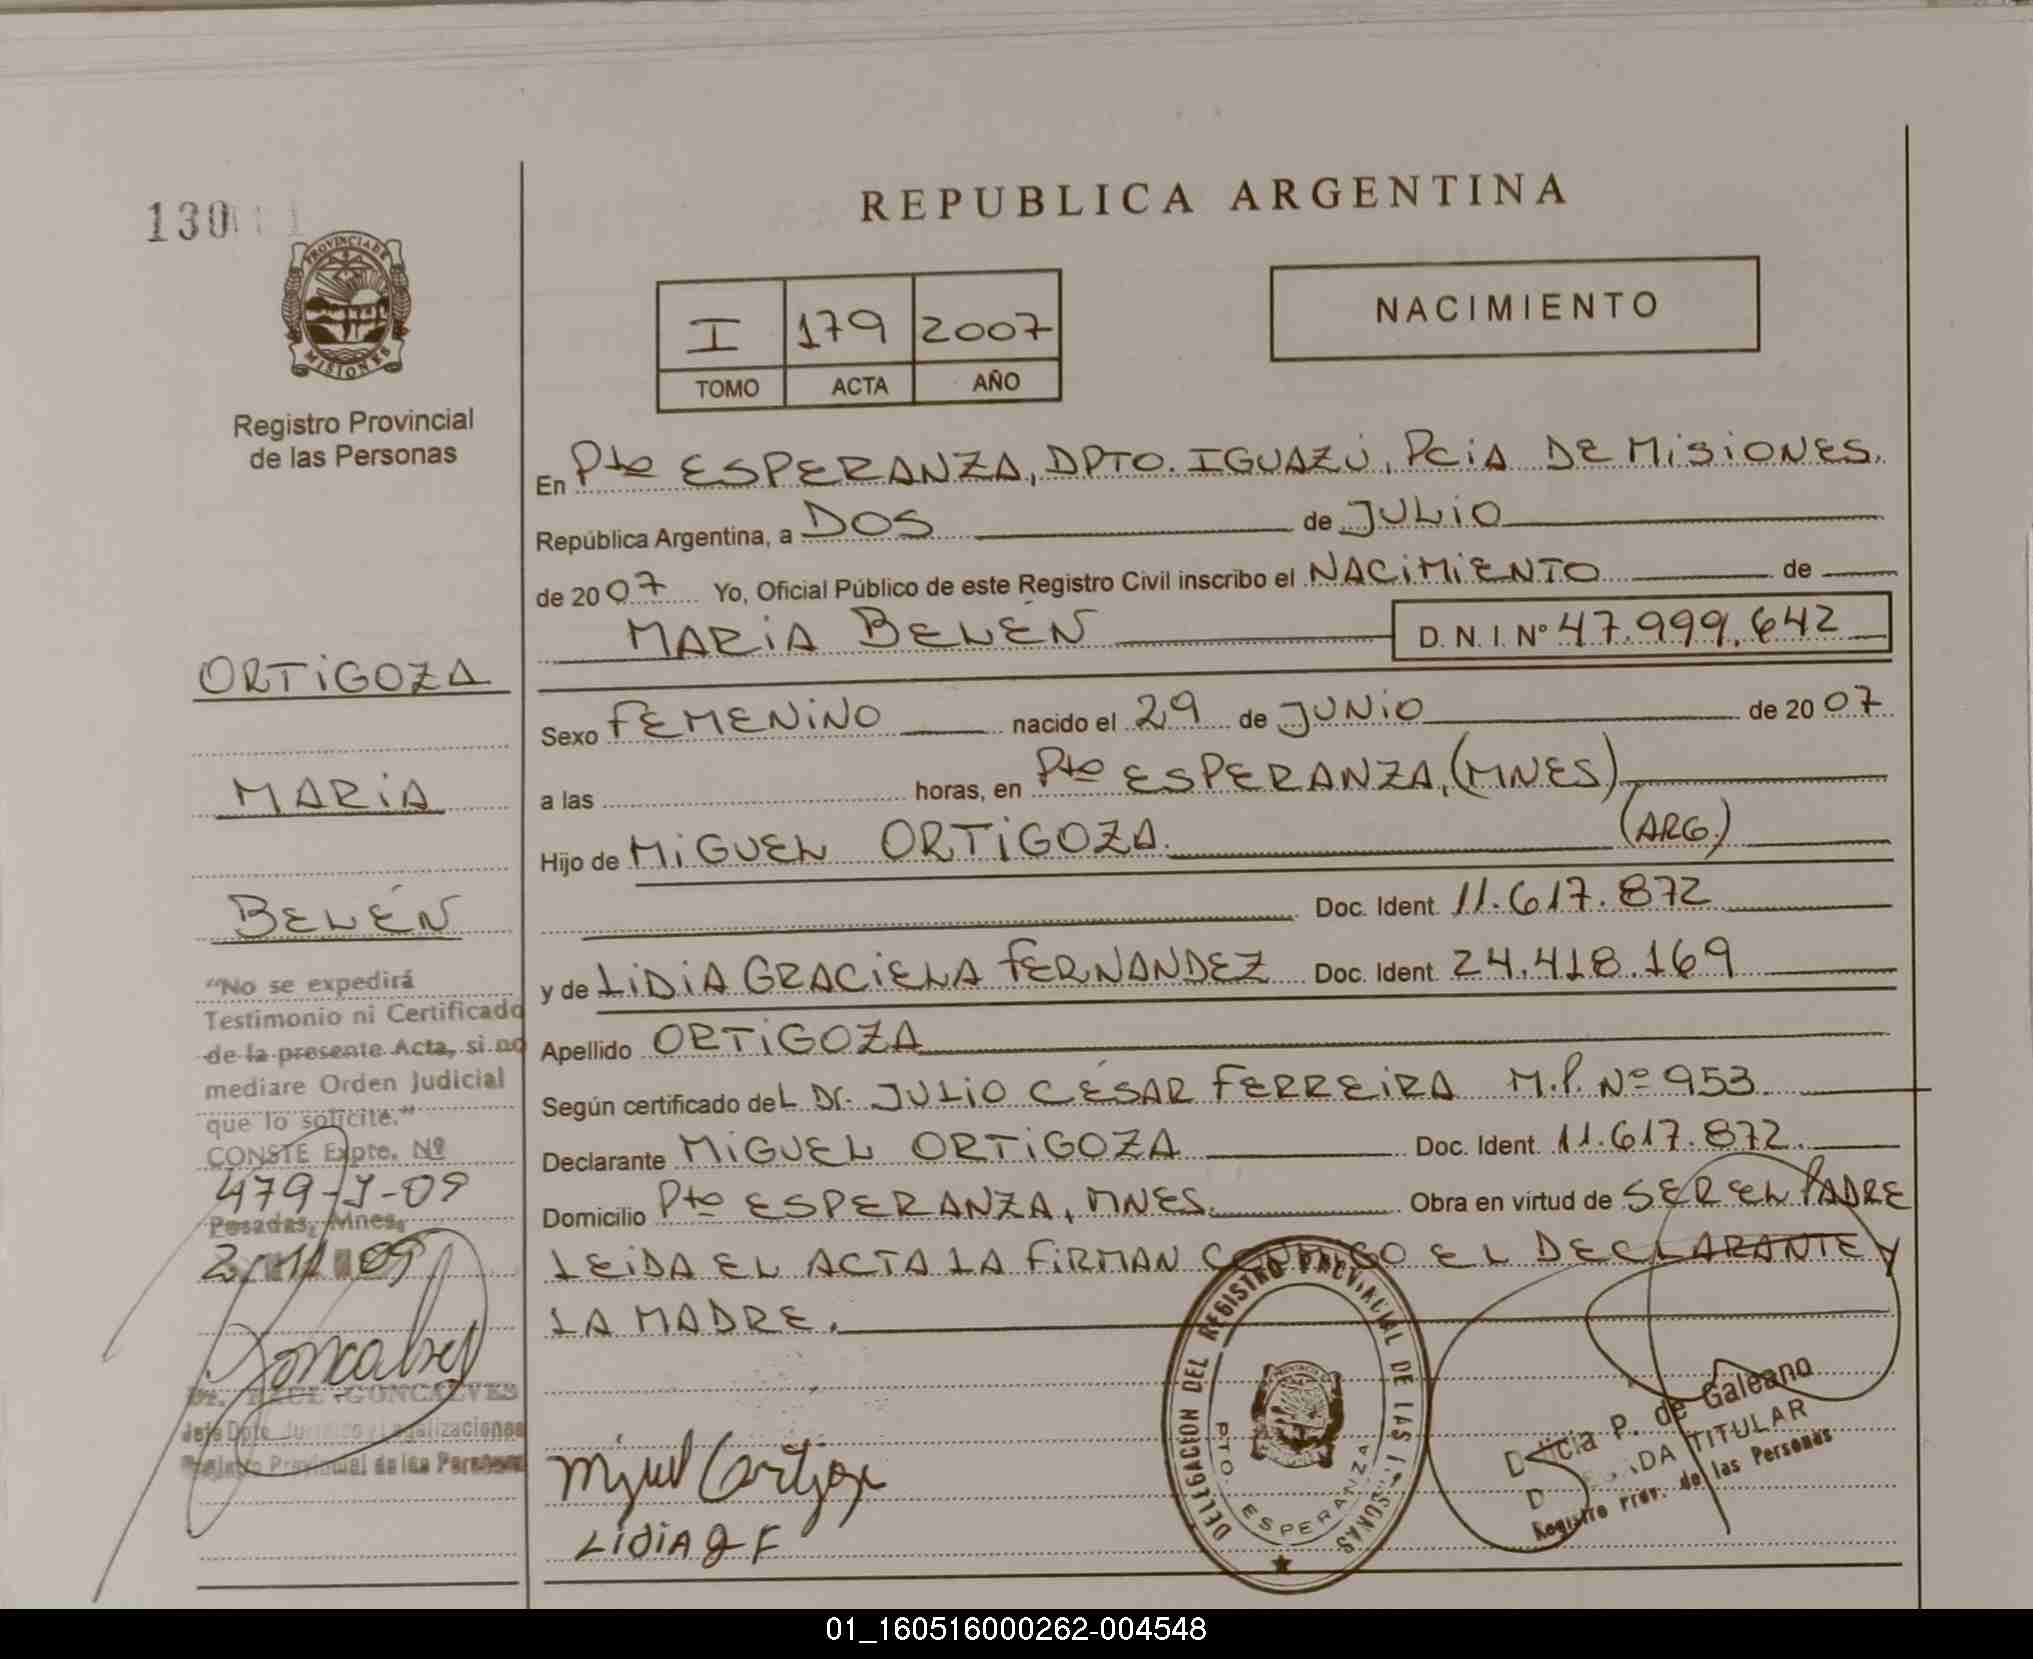 130
REPUBLICA ARGENTINA
PROVINCIA DE MISIONES
Registro Provincial
de las Personas
I 179 2007
TOMO ACTA AÑO
NACIMIENTO
En Pto ESPERANZA, DPTO. IGUAZÚ, PCIA DE MISIONES.
República Argentina, a DOS de JULIO
de 2007 Yo, Oficial Público de este Registro Civil inscribo el NACIMIENTO de
MARIA BELÉN D.N.I. Nº 47.999.642
ORTIGOZA
MARIA
BELÉN
Sexo FEMENINO nacido el 29 de JUNIO de 2007
a las horas, en Pto ESPERANZA, (MNES)
Hijo de MIGUEL ORTIGOZA. (ARG.)
Doc. Ident. 11.617.872
y de LIDIA GRACIELA FERNANDEZ Doc. Ident. 24.418.169
Apellido ORTIGOZA
Según certificado del Dr. JULIO CÉSAR FERREIRA M.P. Nº 953
Declarante MIGUEL ORTIGOZA Doc. Ident. 11.617.872.
Domicilio Pto ESPERANZA, MNES. Obra en virtud de SER EL PADRE
LEIDA EL ACTA LA FIRMAN CONMIGO EL DECLARANTE Y
LA MADRE.
"No se expedirá
Testimonio ni Certificado
de la presente Acta, si no
mediare Orden Judicial
que lo solicite."
CONSTE Expte. Nº
479-J-09
Posadas, Mnes,
Dr. RAUL GONCALVES
Jefe Dpto Jurídico y Legalizaciones
Registro Provincial de las Personas
Miguel Ortigoza
LIDIA G F
DELEGACION DEL REGISTRO PROVINCIAL DE LAS PERSONAS
PTO. ESPERANZA
P. de Galeano
TITULAR
Registro Prov. de las Personas
01_160516000262-004548